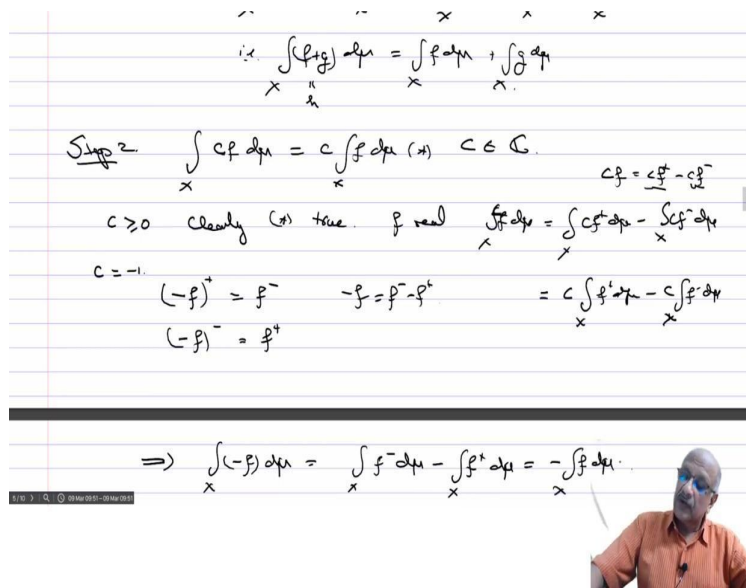 i.e. ∫_X (f+g) dμ = ∫_X f dμ + ∫_X g dμ.
"
h
Step 2. ∫_X cf dμ = c ∫_X f dμ (*) c ∈ ℂ.
cf = cf⁺ - cf⁻
c ≥ 0 clearly (*) true. f real ∫_X cf dμ = ∫_X cf⁺ dμ - ∫_X cf⁻ dμ
c = -1.
(-f)⁺ = f⁻ -f = f⁻ - f⁺ = c ∫_X f⁺ dμ - c ∫_X f⁻ dμ
(-f)⁻ = f⁺
⇒ ∫_X (-f) dμ = ∫_X f⁻ dμ - ∫_X f⁺ dμ = - ∫_X f dμ.
5 / 10 09 Mar 09:51 - 09 Mar 09:51